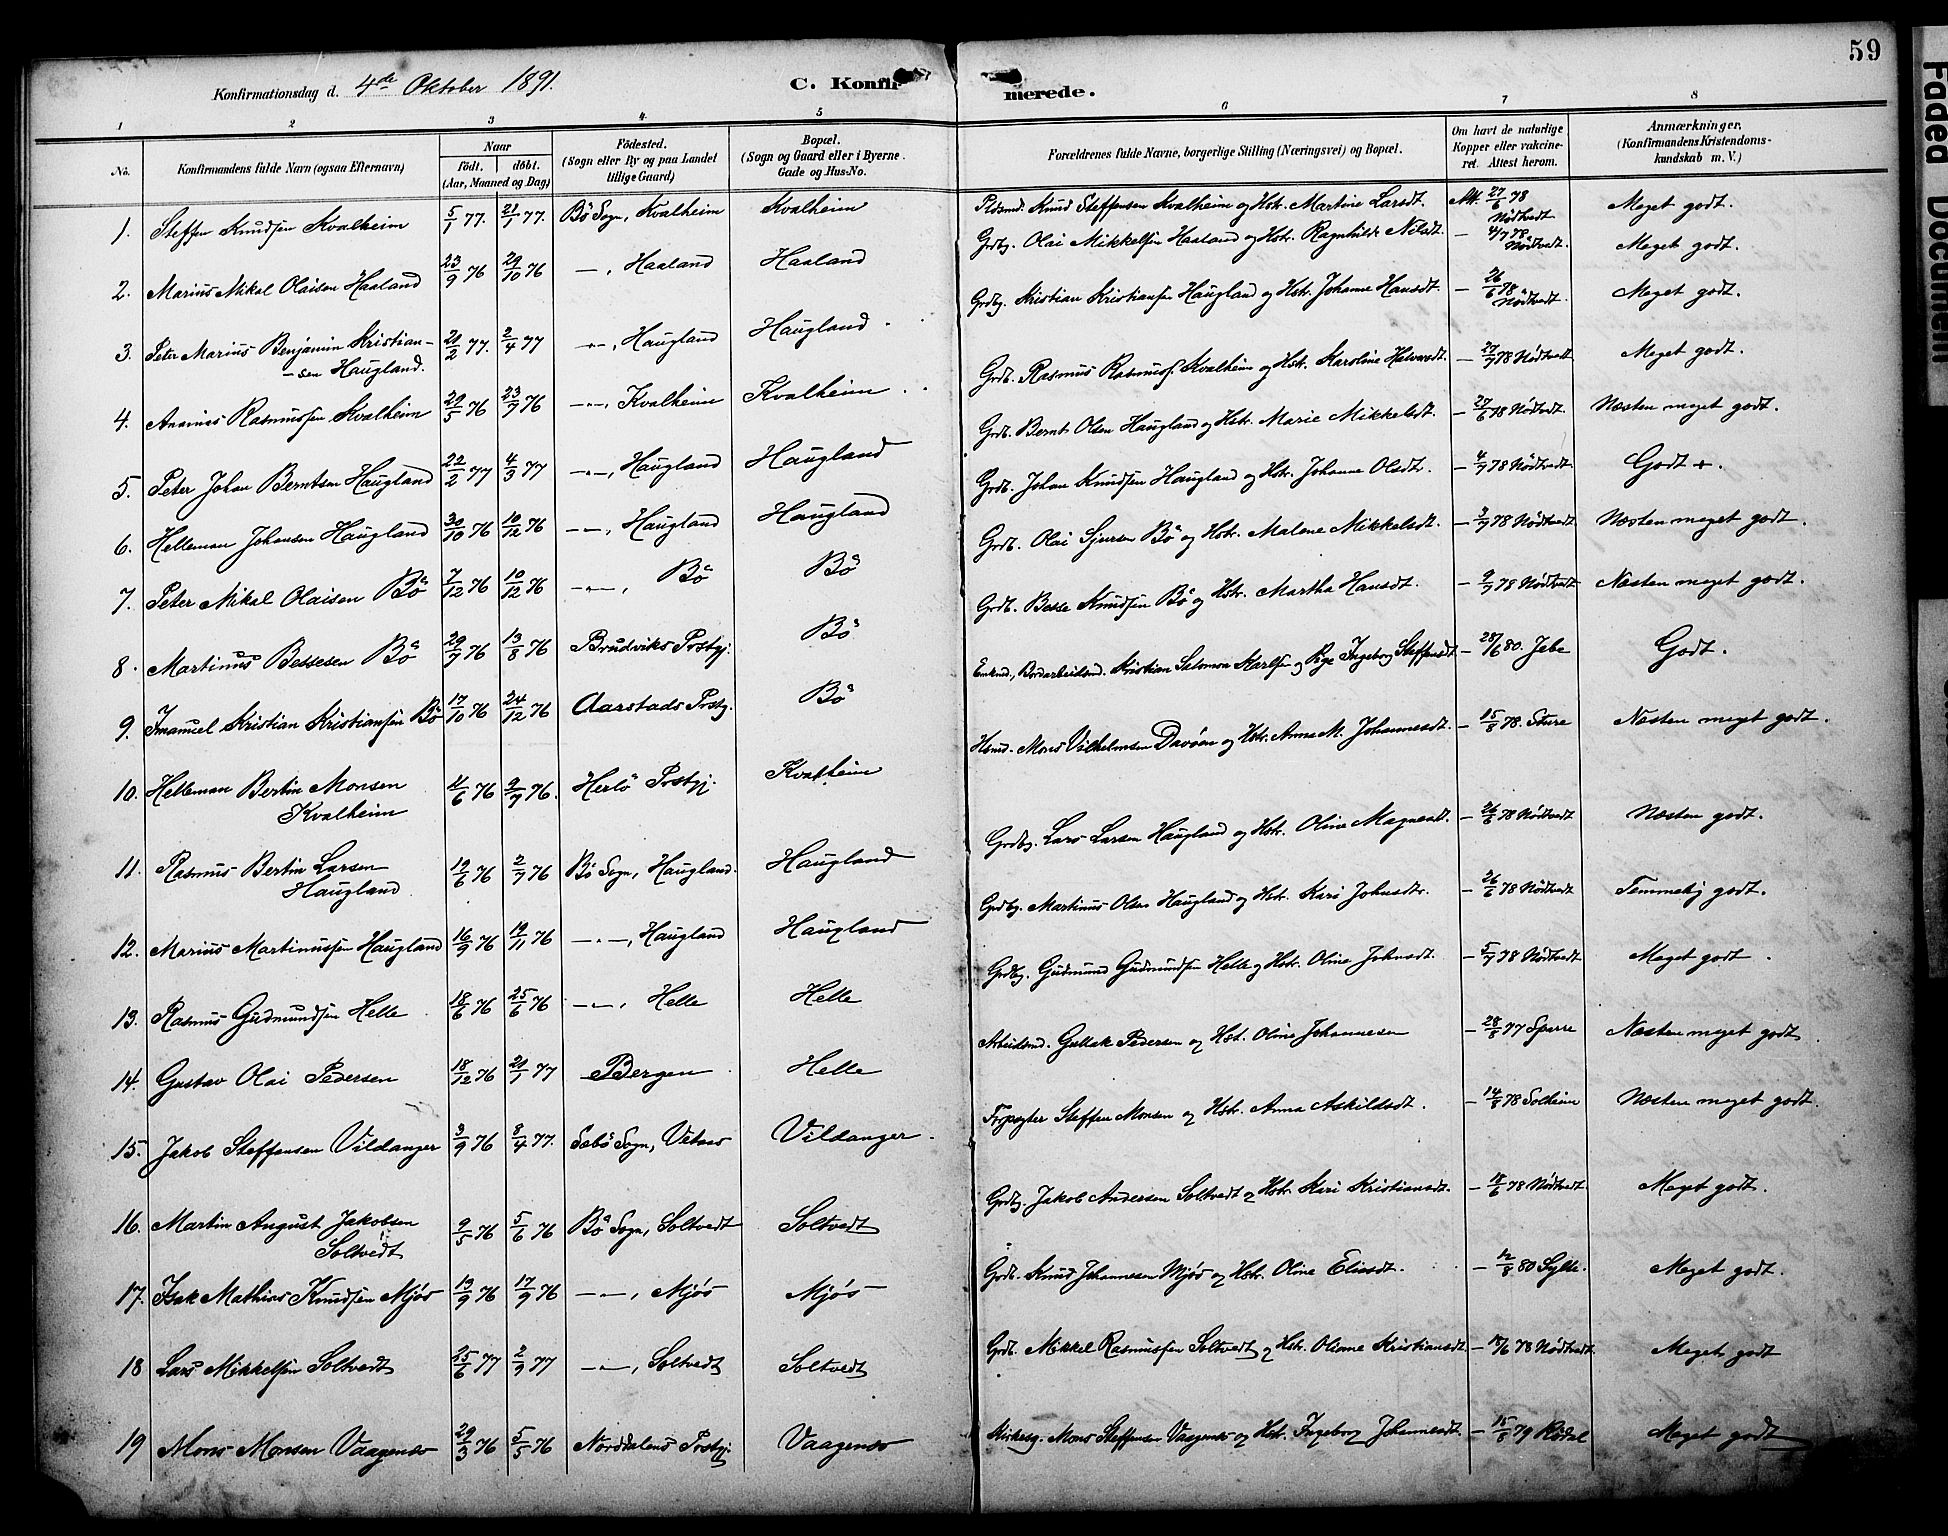 59
Konfirmationsdag d. 4de Oktober 1891.
C. Konfirmerede.
1 2 3 4 5 6 7 8
No. Konfirmandens fulde Navn (ogsaa Efternavn) Naar Födt. döbt. (Aar, Maaned og Dag) Födested. (Sogn eller By og paa Landet tillige Gaard) Bopæl. (Sogn og Gaard eller i Byerne. Gade og Hus-No. Forældrenes fulde Navne, borgerlige Stilling (Næringsvei) og Bopæl. Om havt de naturlige Kopper eller vakcineret. Attest herom. Anmærkninger, (Konfirmandens Kristendomskundskab m. V.)
1. Steffen Knudsen Kvalheim 5/1 77. 21/1 77. Bö Sogn, Kvalheim Kvalheim Pldsmd. Knud Steffensen Kvalheim og Hstr. Martine Larsdt. Att. 27/6 78 Nödtvedt Meget godt.
2. Marius Mikal Olaisen Haaland 23/9 76 29/10 76 —, Haaland Haaland Grdbg. Olai Mikkelsen Haaland og Hstr. Ragnhilde Nilsdt. — 4/7 78. Nödtvedt. Meget godt.
3. Peter Marius Benjamin Kristian-
-sen Haugland. 20/2 77. 2/4 77 —"—, Haugland Haugland. Grdbg. Kristian Kristiansen Haugland og Hstr. Johanne Hansdt. — 26/6 78 Nödtvedt. Meget godt.
4. Ananias Rasmussen Kvalheim 20/5 76 23/9 76 —"—, Kvalheim Kvalheim Grdb. Rasmus Rasmuss. Kvalheim og Hstr. Karoline Halvorsdt. — 27/7 78 Nödtvedt. Meget godt.
5. Peter Johan Berntsen Haugland 22/2 77 4/3 77 —"—, Haugland Haugland Grdb. Bernt Olsen Haugland og Hstr. Marie Mikkelsdt. — 27/6 78 Nödtvedt. Næsten meget godt.
6. Helleman Johansen Haugland 30/10 76 10/12 76 —"—, Haugland Haugland Grdb. Johan Knudsen Haugland og Hstr. Johanne Olsdt. — 4/7 78 Nödtvedt. Godt +.
7. Peter Mikal Olaisen Bö 7/12 76 10/12 76 —"—, Bö Bö Grdb. Olai Sjursen Bö og Hstr. Malene Mikkelsdt. — 3/7 78 Nödtvedt. Næsten meget godt.
8. Martinus Bessesen Bö 29/7 76 13/8 76 Brudviks Prstgj. Bö Grdb. Besse Knudsen Bö og Hstr. Martha Hansdt. — 9/7 78 Nödtvedt Næsten meget godt.
9. Imanuel Kristian Kristiansen Bö 17/10 76 24/12 76 Aarstads Prstg. Bö Enkmd., Bordarbeidsmd. Kristian Salomon Karlsen og Pige Ingeborg Steffensdt — 28/6 80. Jebe Godt.
10. Helleman Bertin Monsen
Kvalheim 4/6 76 9/7 76. Herlö Prstgj. Kvalheim Hsmd. Mons Vilhelmsen Davöen og Hstr. Anna M. Johannesdt. — 15/8 78. Sture Næsten meget godt.
11. Rasmus Bertin Larsen
Haugland 19/6 76 2/7 76 Bö Sogn, Haugland. Haugland Grdbg. Lars Larsen Haugland og Hstr. Oline Magnesdt. — 26/6 78 Nödtvedt Næsten godt.
12. Marius Martinussen Haugland 16/9 76 19/11 76 —"—, Haugland Haugland Grdbg. Martinus Olsen Haugland og Hstr. Kari Johnsdtr. — 26/6 78 Nödtvedt Temmelig godt.
13. Rasmus Gudmundsen Helle 18/6 76 25/6 76 —"—, Helle Helle Grdbg. Gudmund Gudmundsen Helle og Hstr. Oline Johnsdt. — 5/7 78 Nödtvedt. Meget godt.
14. Gustav Olai Pedersen 18/12 76 21/1 77 Bergen Helle Arbeidsmd. Gullak Pedersen og Hst. Oline Johannesen — 28/8 77 Sparre Næsten meget godt
15. Jakob Steffensen Vildanger 3/9 76 8/4 77. Sæbö Sogn, Vildanger. Steffen Monsen og Hstr. Anna Askildsdt. — 14/8 78 Solheim Næsten meget godt.
16. Martin August Jakobsen
Soltvedt 9/5 76 5/6 76 Bö Sogn, Soltvedt Soltvedt Grdbg. Jakob Andersen Soltvedt og Hstr. Kari Kristiansdt. — 18/6 78 Nödtvedt. Meget godt.
17. Isak Mathias Knudsen Mjös 13/9 76 17/9 76 —"—, Mjös Mjös Grdb. Knud Johannesen Mjös og Hstr. Oline Eliasdt. — 12/8 80 Meget godt.
18 Lars Mikkelsen Soltvedt 25/6 77 2/9 77 —"—, Soltvedt Soltvedt Grdb. Mikkel Rasmussen Soltvedt og Hstr. Olianne Kristiansdt — 18/6 78 Nödtvedt. Meget godt
19 Mons Monsen Vaagenes 29/3 76 5/5 76 Norddalens Prstgj. Vaagenes Kirkesg. Mons Steffensen Vaagenes og Hstr. Ingeborg Johannesdt. — 15/8 79 Rödal Meget godt
Faded Document